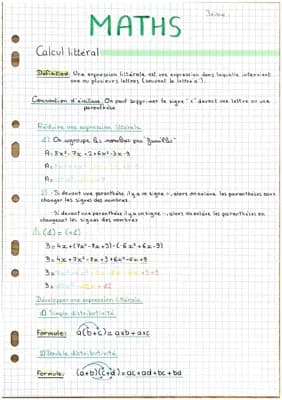 MATHS
3ème
Calcul littéral
Définition: Une expression littérale est une expression dans laquelle intervient
une ou plusieurs lettres (souvent la lettre x).
Convention d'écriture: On peut supprimer le signe "x" devant une lettre ou une
parenthèse
Réduire une expression littérale
1) On regroupe les nombres par "famille"
A = 8x² - 7x + 2 + 6x² - 3x - 9
A =
A =
2) - Si devant une parenthèse il y a ce signe +, alors on enlève les parenthèses sans
changer les signes des nombres.
- Si devant une parenthèse il y a ce signe -, alors on enlève les parenthèses en
changeant les signes des nombres
⚠ (d) = (+d)
B = 4x + (7x² - 8x + 3) - (-6x² + 6x - 9)
B = 4x + 7x² - 8x + 3 + 6x² - 6x + 9
B =
B =
Développer une expression littérale
1) Simple distributivité
Formule: a(b+c) = axb + axc
2) Double distributivité
Formule: (a+b)(c+d) = ac + ad + bc + bd